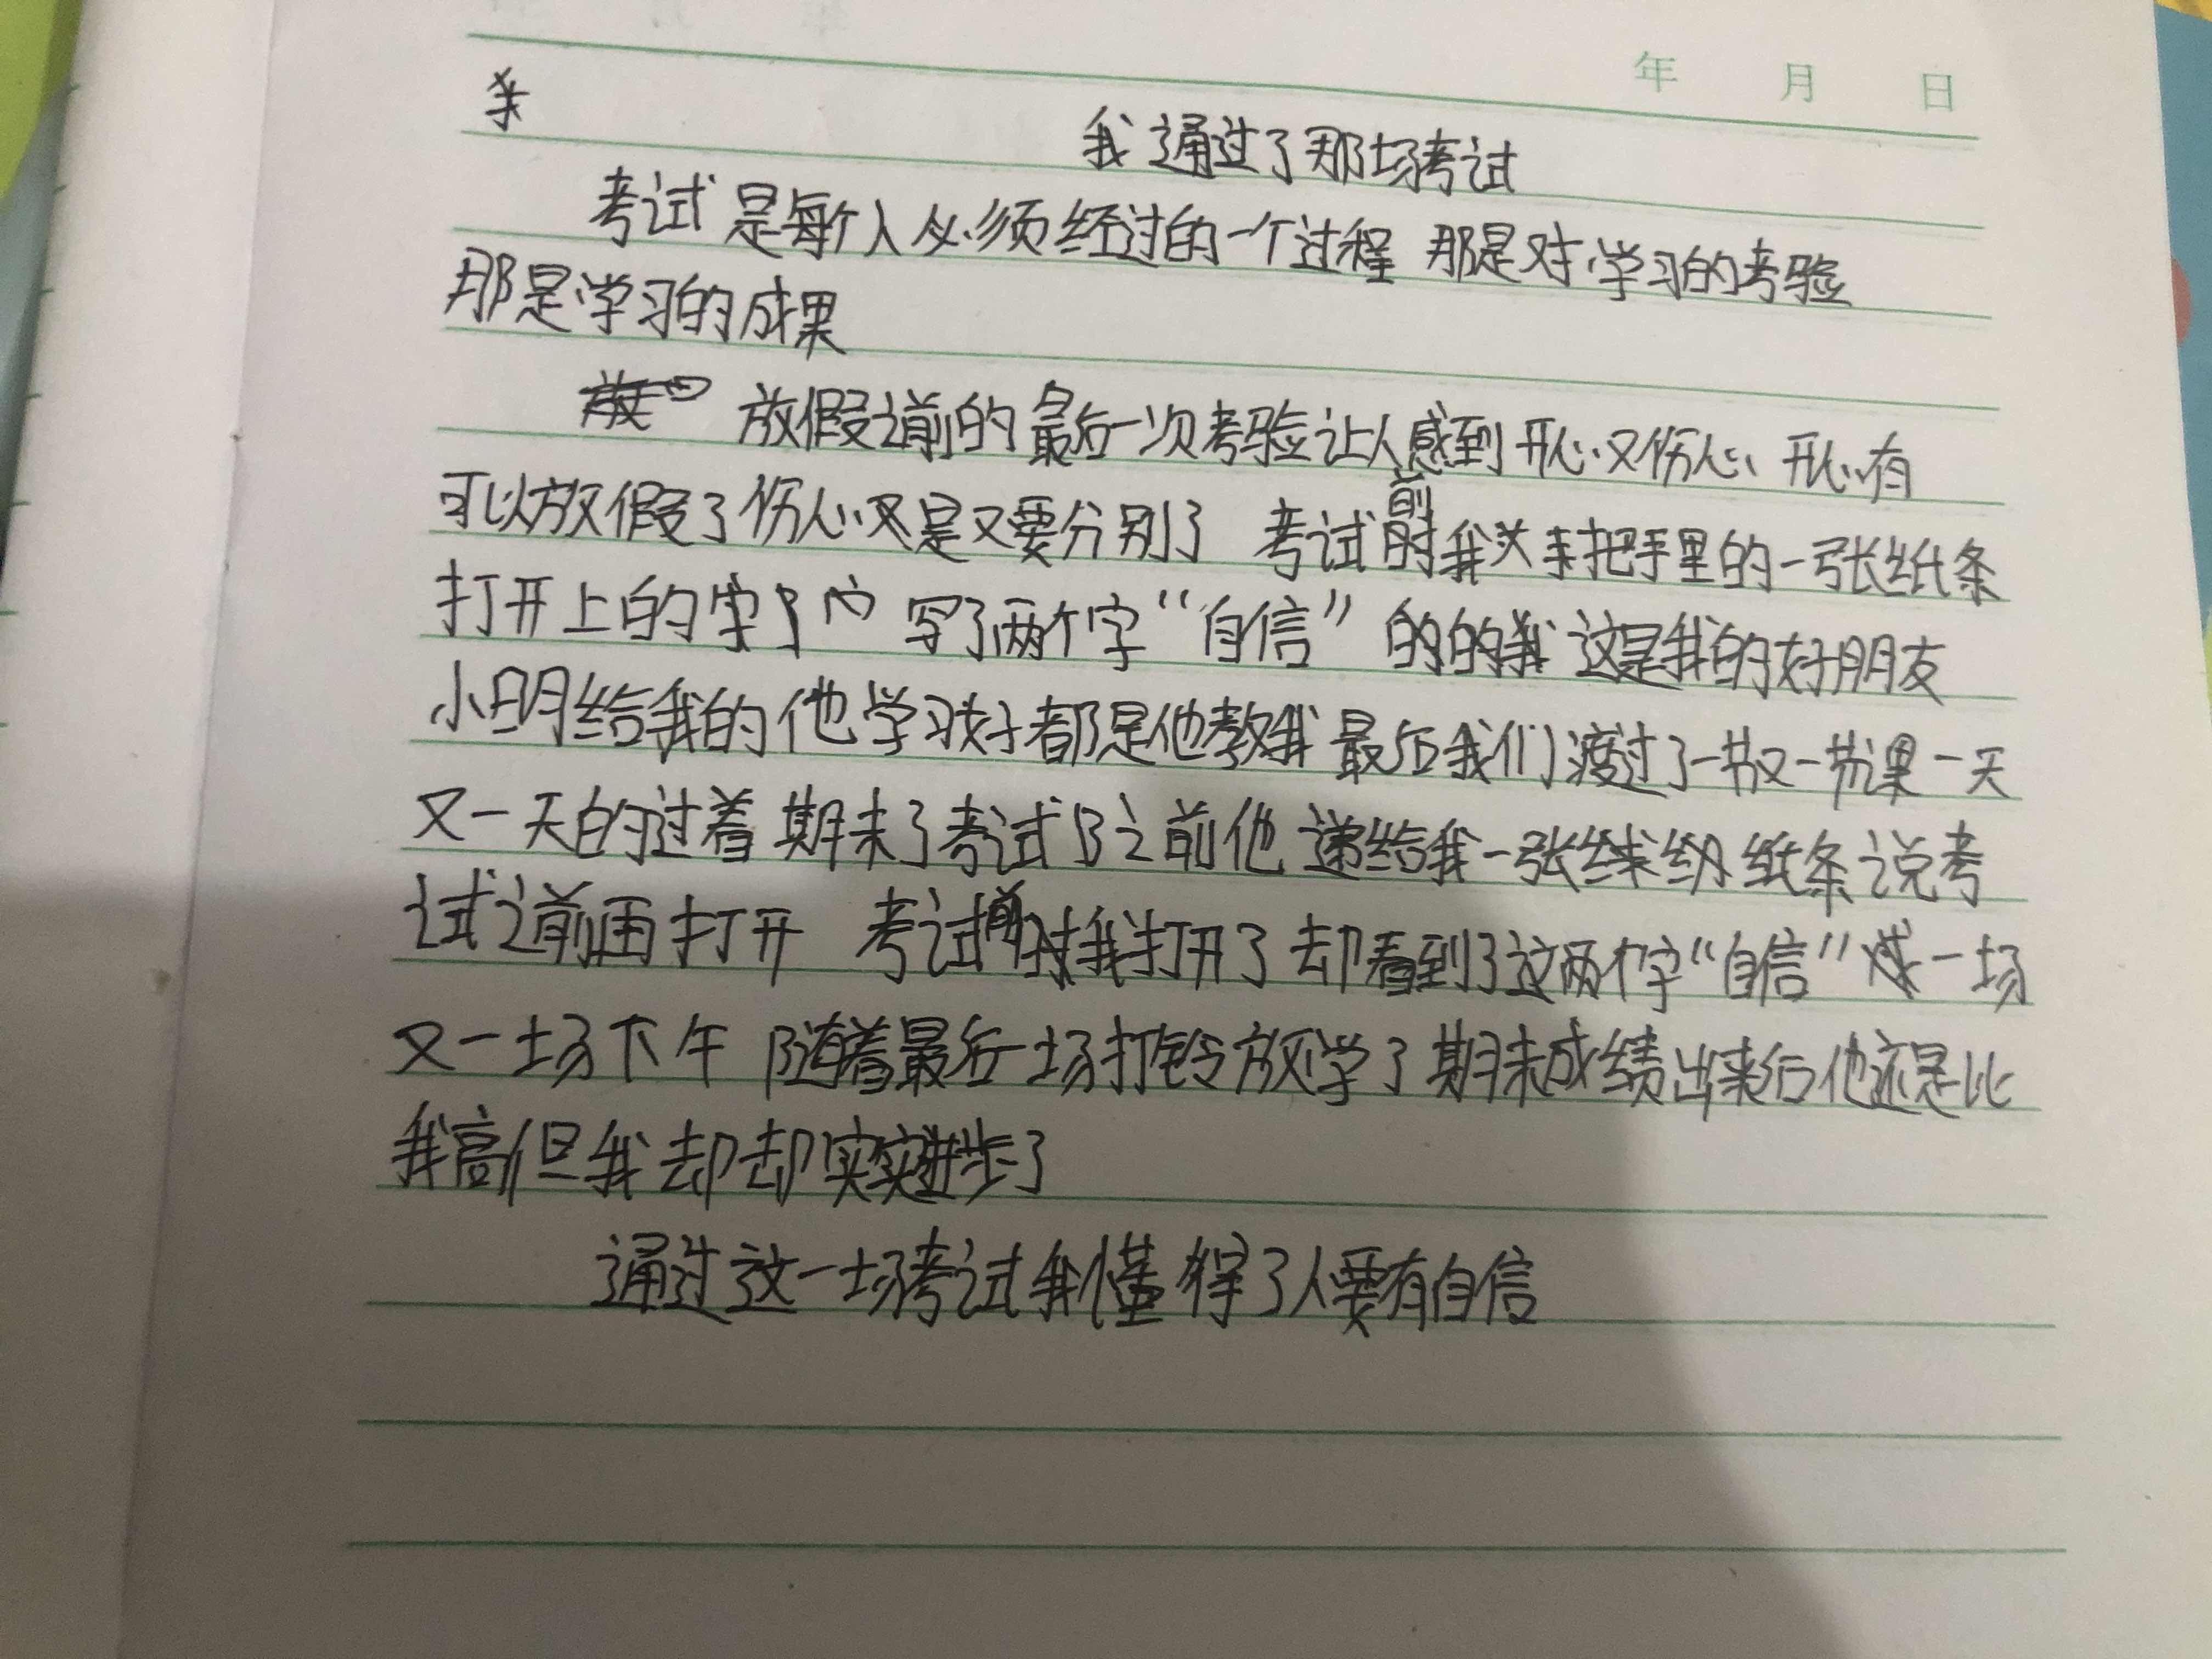 年 月 日
我通过了那场考试
考试是每个人必须经过的一个过程 那是对学习的考验
那是学习的成果
放假之前的最后一次考验让人感到开心又伤心 开心有
可以放假了伤心又是又要分别了 考试前时我头手把手里的一张纸条
打开上的字 写了两个字“自信” 的的我 这是我的好朋友
小明给我的他学习好都是他教我 最后我们渡过了一节又一节课一天
又一天的过着 期末了考试 之前他递给我一张 纸条说考
试之前再打开 考试前时我打开了却看到了这两个字“自信” 一场
又一场下午 随着最后一场打铃放学了期末成绩出来后他还是比
我高但我却却实实进步了
通过这一场考试我懂得了人要有自信